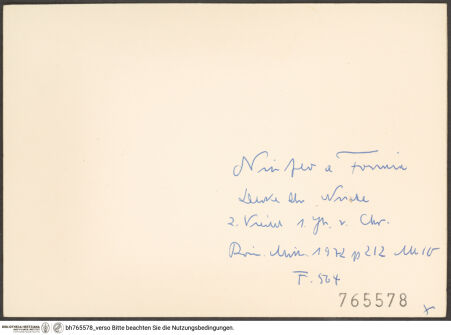 Ninfeo a Formia
Decke der Nische
2. Viertel 1. Jh. v. Chr.
Röm. Mitt. 1972 p 212
F. 504
765578
BIBLIOTHECA HERTZIANA
bh765578_verso Bitte beachten Sie die Nutzungsbedingungen.